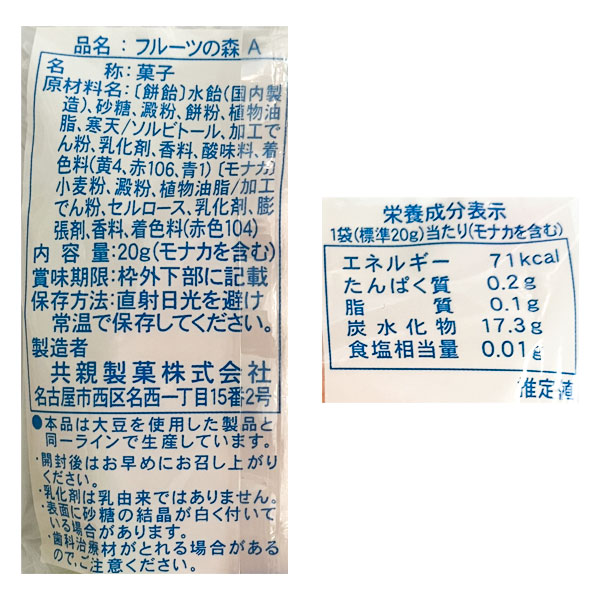 品名：フルーツの森 A
名　　称：菓子
原材料名：〔餅飴〕水飴(国内製
造)、砂糖、澱粉、餅粉、植物油
脂、寒天/ソルビトール、加工で
ん粉、乳化剤、香料、酸味料、着
色料(黄4、赤106、青1)〔モナカ〕
小麦粉、澱粉、植物油脂/加工
でん粉、セルロース、乳化剤、膨
張剤、香料、着色料(赤色104)
内 容 量：20g(モナカを含む)
賞味期限：枠外下部に記載
保存方法：直射日光を避け
常温で保存してください。
製造者
共親製菓株式会社
名古屋市西区名西一丁目15番2号
●本品は大豆を使用した製品と
同一ラインで生産しています。
・開封後はお早めにお召し上がり
ください。
・乳化剤は乳由来ではありません。
・表面に砂糖の結晶が白く付いて
いる場合があります。
・歯科治療材がとれる場合がある
ので、ご注意ください。
栄養成分表示
1袋(標準20g)当たり(モナカを含む)
エネルギー 71kcal
たんぱく質 0.2g
脂　　質 0.1g
炭水化物 17.3g
食塩相当量 0.01g
推定値